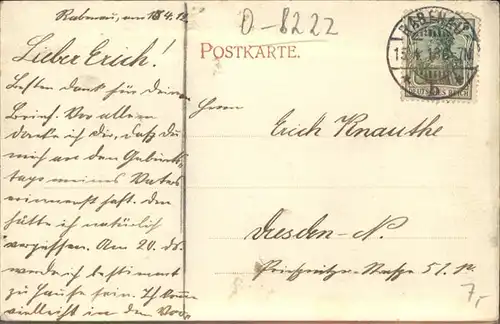 Rabenau, am 13.4.12
Lieber Erich!
Besten Dank für Deinen
Brief. Vor allem
danke ich dir, daß du
mich an den Geburts-
tage meines Vaters
erinnert hast. Den
hätte ich natürlich
vergessen. Am 20. ds.
werde ich bestimmt
zu Hause sein. Ich komme
vielleicht in den Vor-
D-8222
POSTKARTE.
Herrn
Erich Knauthe
Dresden-N.
Straße 51.
7,-
RABENAU
DEUTSCHES REICH